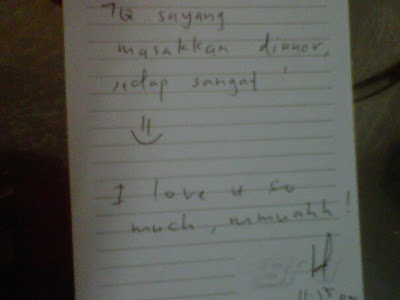 TQ sayang
masakkan dinner,
sedap sangat!
I love u so
much, mmuahh!
H